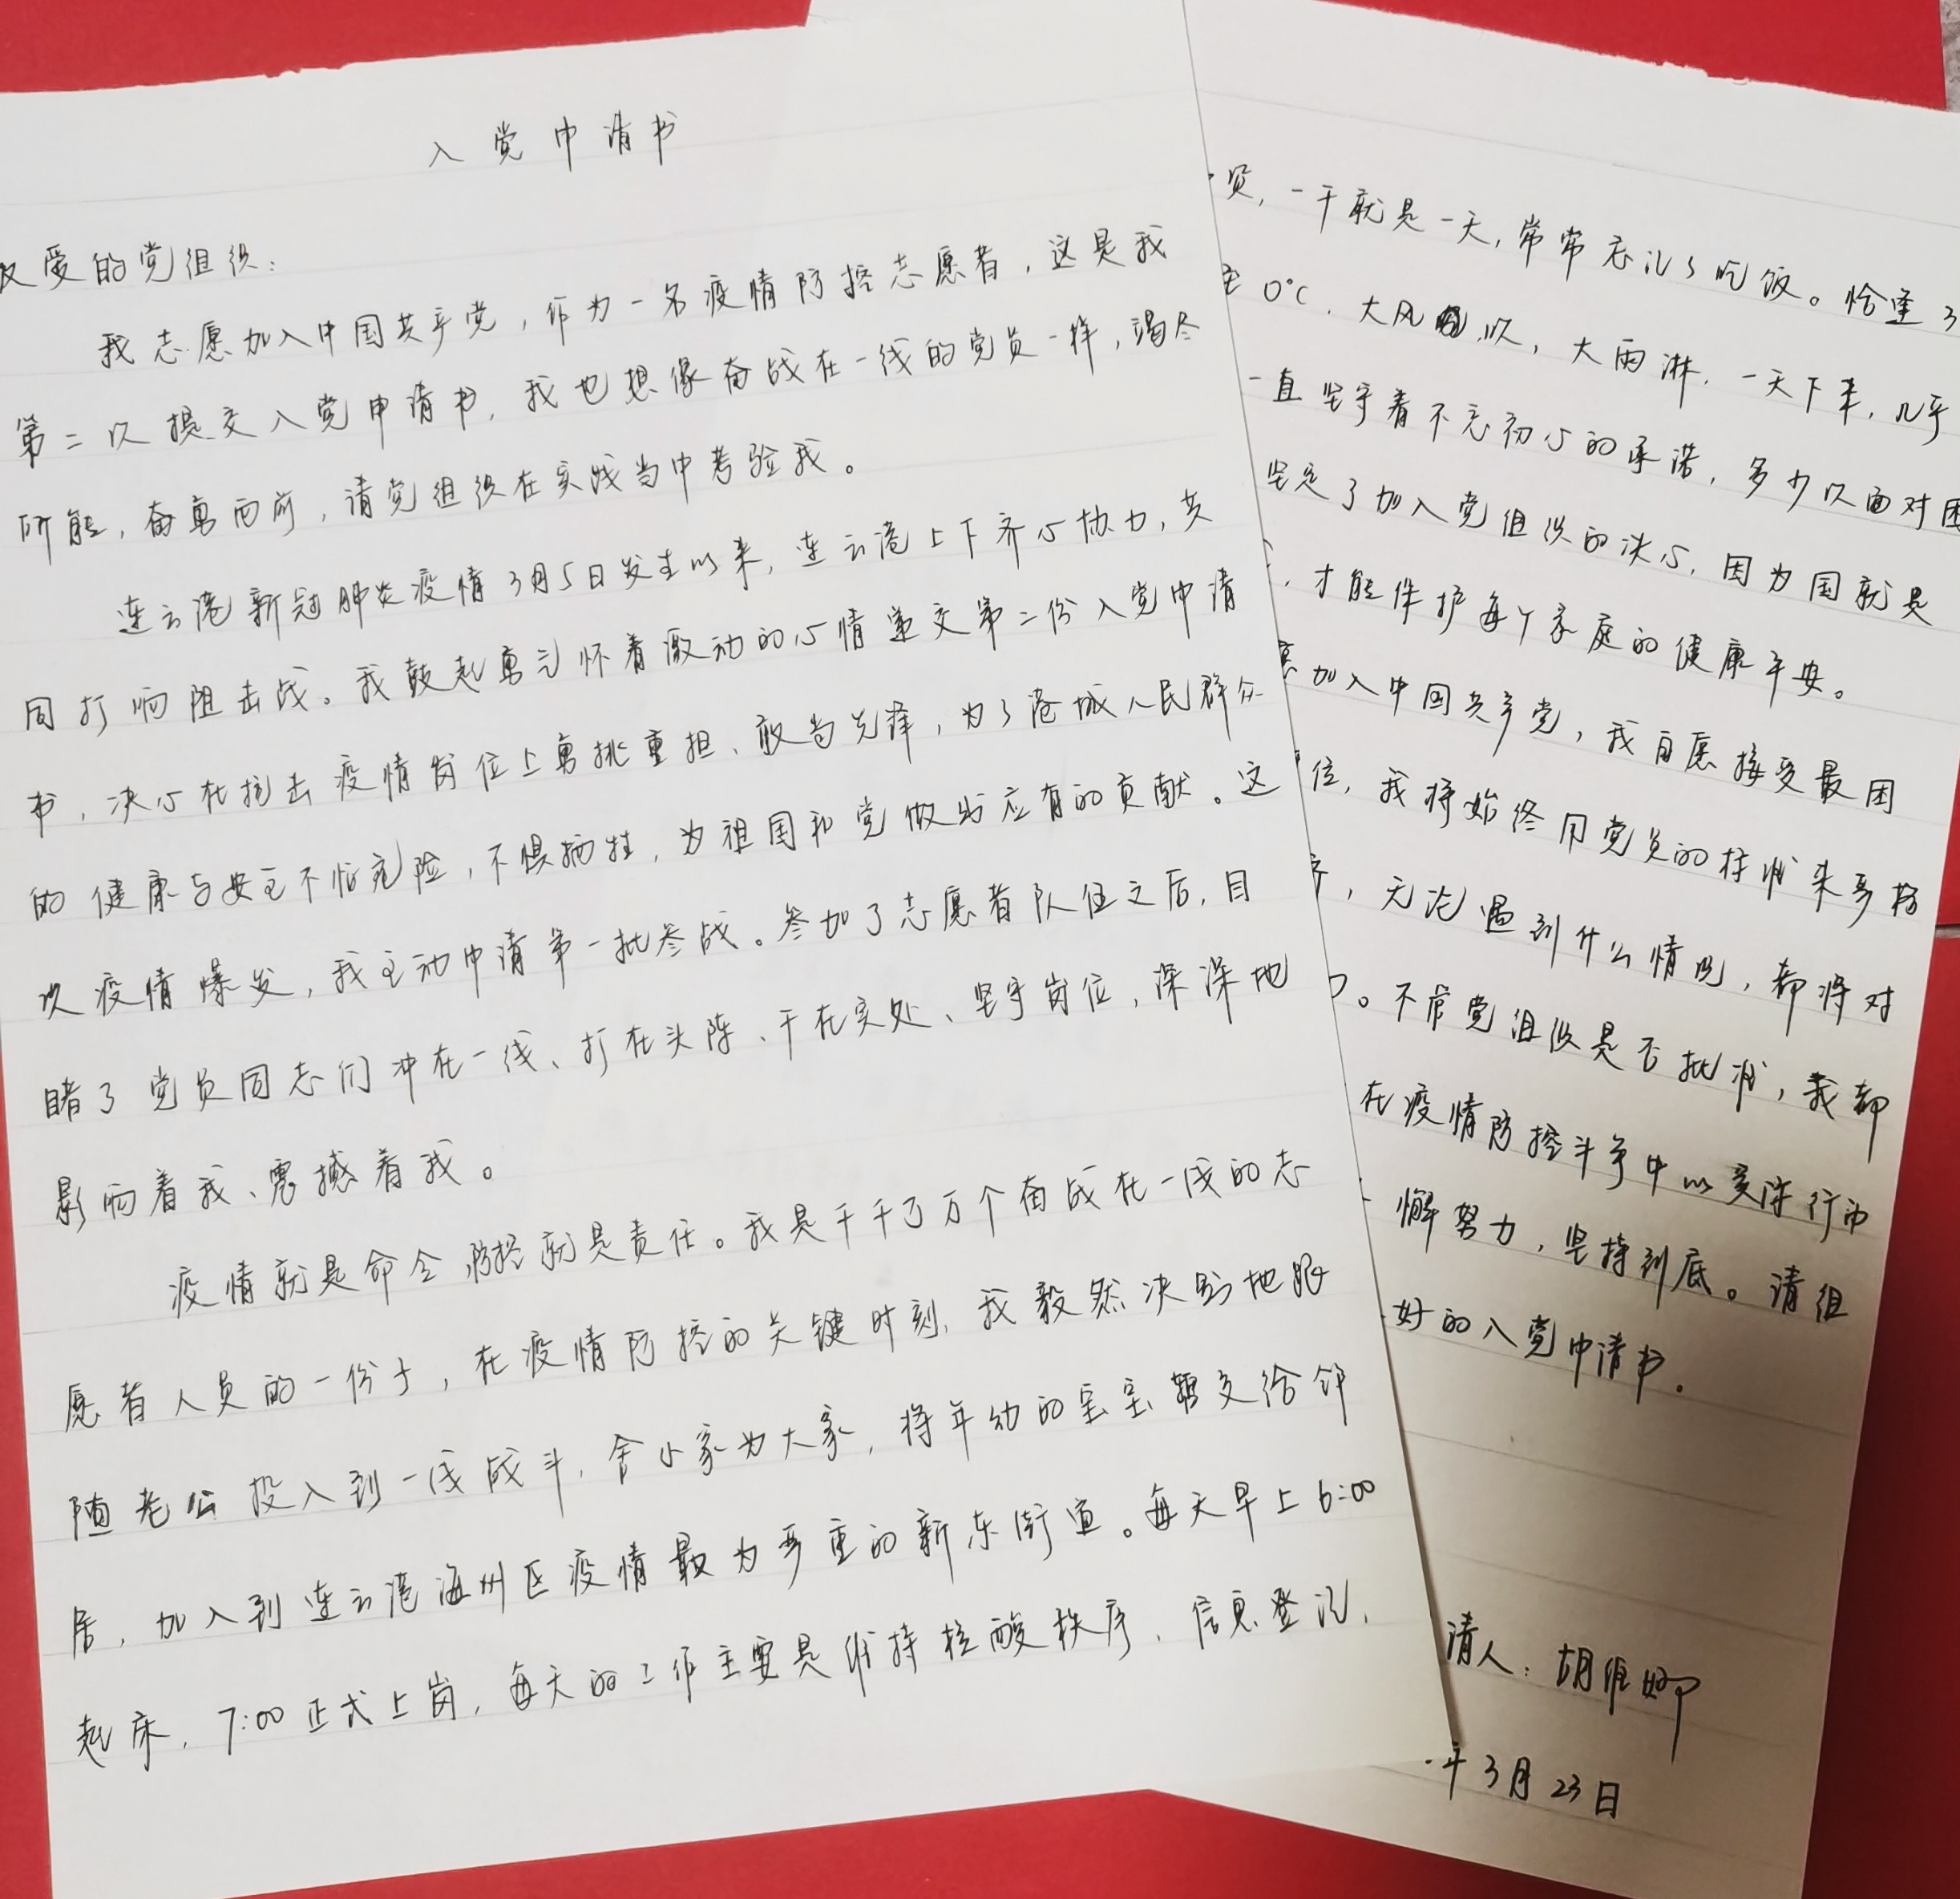 入党申请书
爱的党组织：
我志愿加入中国共产党，作为一名疫情防控志愿者，这是我
第二次提交入党申请书，我也想像奋战在一线的党员一样，竭尽
所能，奋勇向前，请党组织在实践当中考验我。
连云港新冠肺炎疫情3月5日发生以来，连云港上下齐心协力，共
同打响阻击战。我鼓起勇气怀着激动的心情递交第二份入党申请
书，决心在抗击疫情岗位上勇挑重担、敢当先锋，为了港城人民群众
的健康与安全不怕危险，不惧牺牲，为祖国和党做出应有的贡献。这
次疫情爆发，我主动申请第一批参战。参加了志愿者队伍之后，目
睹了党员同志们冲在一线、打在头阵、干在实处、坚守岗位，深深地
影响着我、震撼着我。
疫情就是命令，防控就是责任。我是千千万万个奋战在一线的志
愿者人员的一份子，在疫情防控的关键时刻，我毅然决然地跟
随老公投入到一线战斗，舍小家为大家，将年幼的宝宝托交给邻
居，加入到连云港海州区疫情最为严重的新东街道。每天早上6:00
起床，7:00正式上岗，每天的工作主要是维持核酸秩序、信息登记，
一干就是一天，常常忘记了吃饭。恰逢
0℃，大风吹，大雨淋，一天下来，几乎
一直坚守着不忘初心的承诺，多少次面对困
坚定了加入党组织的决心，因为国就是
，才能保护每个家庭的健康平安。
加入中国共产党，我自愿接受最困
位，我将始终用党员的标准来严格
，无论遇到什么情况，都将对
。不管党组织是否批准，我都
在疫情防控斗争中以实际行动
懈努力，坚持到底。请组
好的入党申请书。
请人：胡
年3月23日